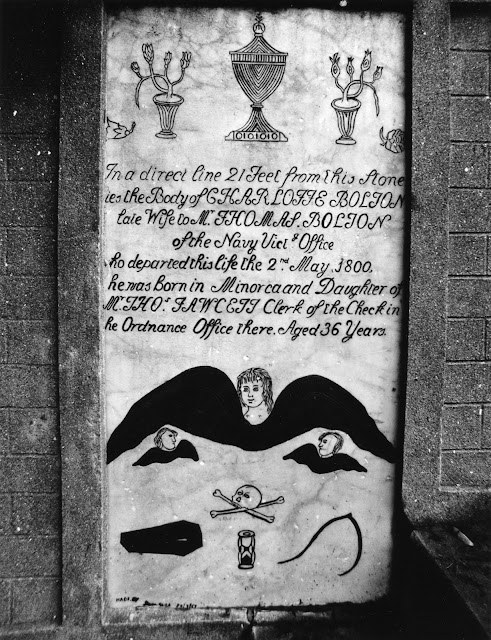 In a direct line 21 Feet from this Stone
ies the Body of CHARLOTTE BOLTON
late Wife to Mr. THOMAS. BOLTON
of the Navy Vict.g Office
ho departed this life the 2.nd May. 1800.
he was Born in Minorca and Daughter of
Mr. THO.s FAWCETT Clerk of the Check in
he Ordnance Office there. Aged 36 Years.